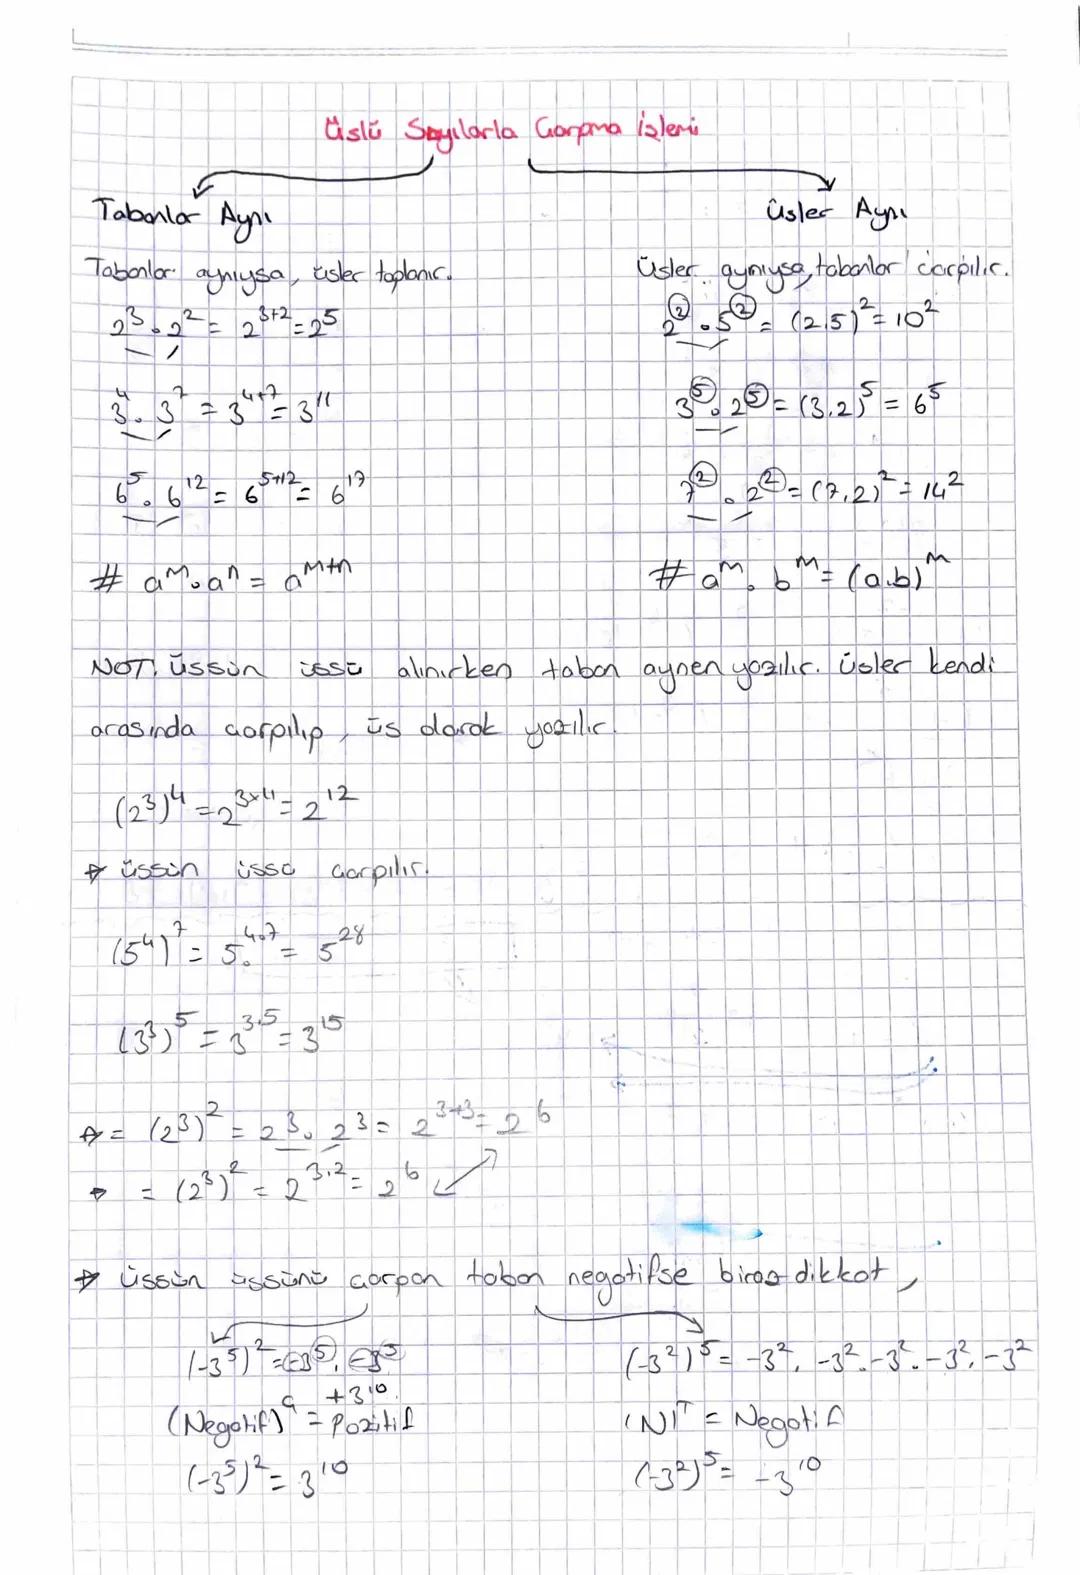 Üslü Sayılarla Çarpma İşlemi
Tabanlar Aynı
Tabanlar aynıysa, üsler toplanır.
2³.2² = 2³⁺² = 2⁵
3⁴.3⁷ = 3⁴⁺⁷ = 3¹¹
6⁵.6¹² = 6⁵⁺¹² = 6¹⁷
# aᵐ.aⁿ = aᵐ⁺ⁿ
Üsler Aynı
Üsler aynıysa, tabanlar çarpılır.
2².5² = (2.5)² = 10²
3⁵.2⁵ = (3.2)⁵ = 6⁵
7².2² = (7.2)² = 14²
# aᵐ.bᵐ = (a.b)ᵐ
NOT: Üssün üssü alınırken taban aynen yazılır. Üsler kendi
arasında çarpılıp, üs olarak yazılır.
(2³)⁴ = 2³ˣ⁴ = 2¹²
üssün üssü çarpılır.
(5⁴)⁷ = 5.⁴·⁷ = 5²⁸
(3³)⁵ = 3³·⁵ = 3¹⁵
= (2³)² = 2³.2³ = 2³⁺³ = 2⁶
= (2³)² = 2³·² = 2⁶
üssün üssünü çarpan taban negatifse biraz dikkat,
(-3⁵)² = -3⁵.-3⁵
+3¹⁰.
(Negatif)ᶜ̧ = Pozitif
(-3⁵)² = 3¹⁰
(-3²)⁵ = -3².-3².-3².-3².-3²
(N)ᵀ = Negatif
(-3²)⁵ = -3¹⁰